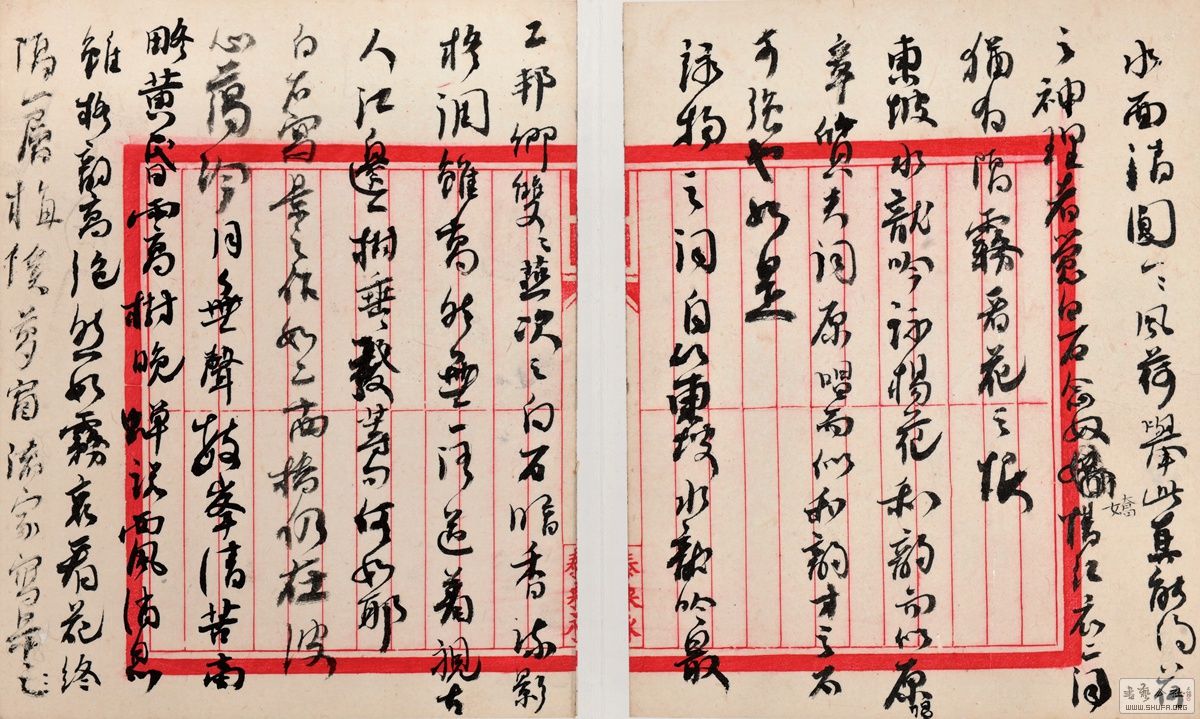 水面清圓一一風荷舉此真能得荷
之神理者覺白石念奴嬌惜紅衣二詞
嬌
猶有隔霧看花之恨
東坡水龍吟詠楊花和韵而似原唱
章質夫詞原唱而似和韵才之不
可強也如是
詠物之詞自以東坡水龍吟最
工邦卿雙雙燕次之白石暗香疏影
格調雖高然無一語道着視古
人江邊一樹垂垂發等句何如耶
白石寫景之作如二十四橋仍在波
心蕩冷月無聲數峯清苦商
略黃昏雨高樹晚蟬說西風消息
雖格韵高絕然如霧裏看花終
隔一層梅溪夢窗諸家寫景之
WWW.SHUFA.ORG